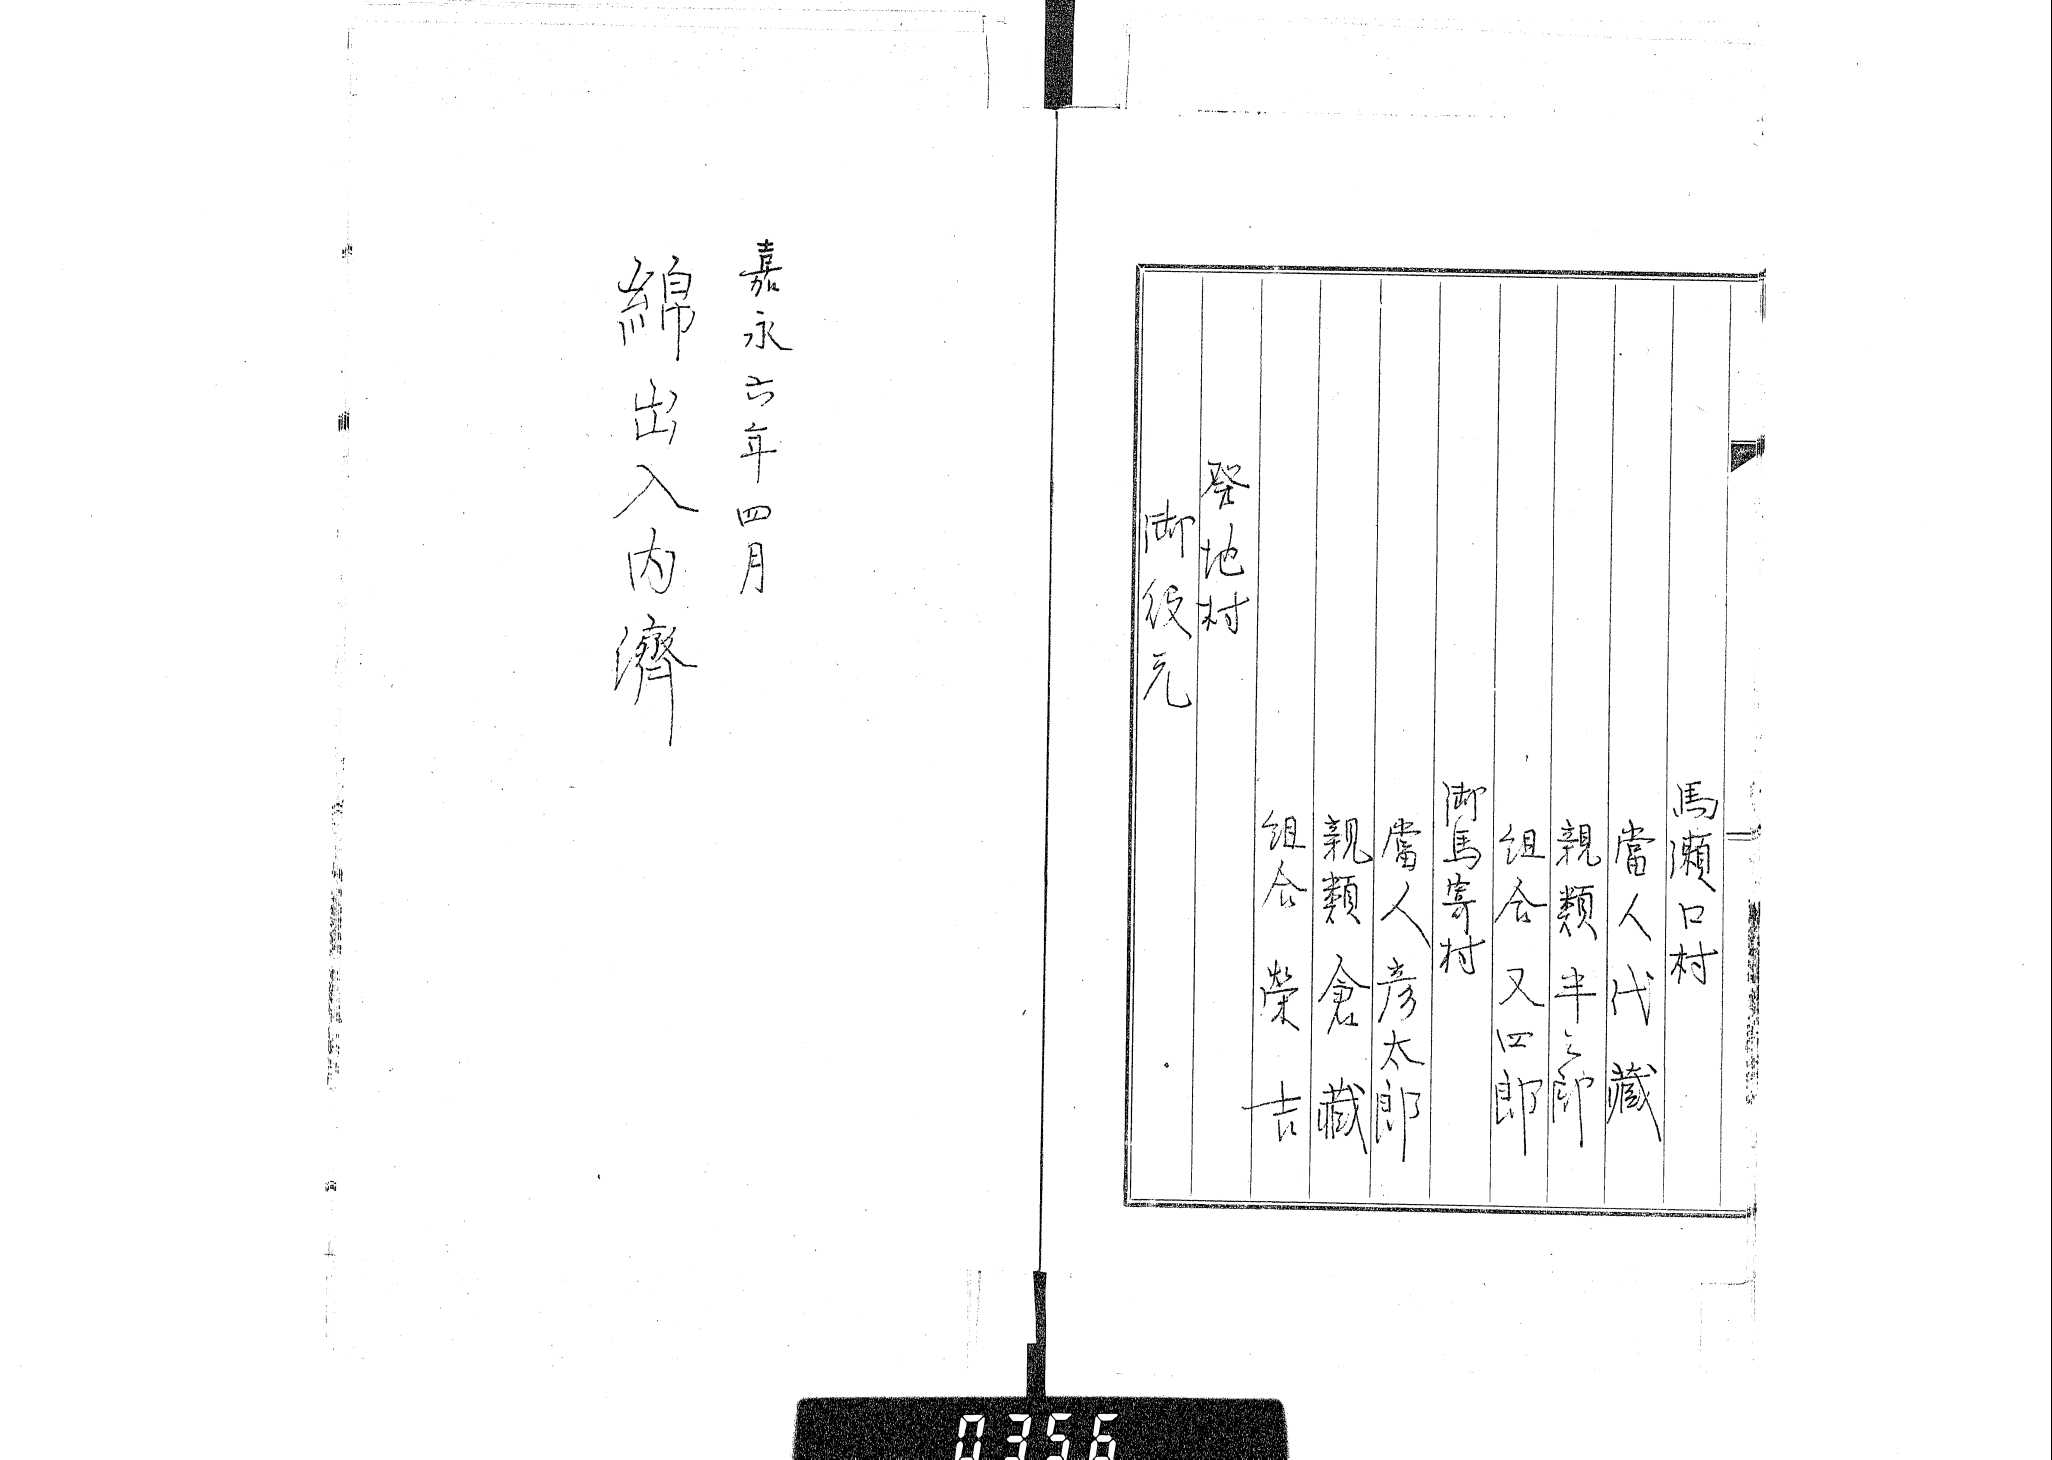 馬瀬口村
當人代藏
親類半三郎
組合又四郎
御馬寄村
當人彦太郎
親類倉藏
組合榮吉
地村
御役元
嘉永六年四月
綿出入内濟
0356